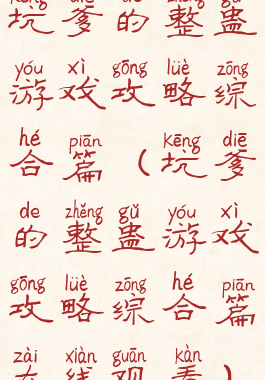 坑 爹 的 整 蛊
yóu xì gōng lüè zōng
游 戏 攻 略 综
hé piān kēng diē
合 篇 （ 坑 爹
de zhěng gǔ yóu xì
的 整 蛊 游 戏
gōng lüè zōng hé piān
攻 略 综 合 篇
zài xiàn guān kàn
在 线 观 看 ）